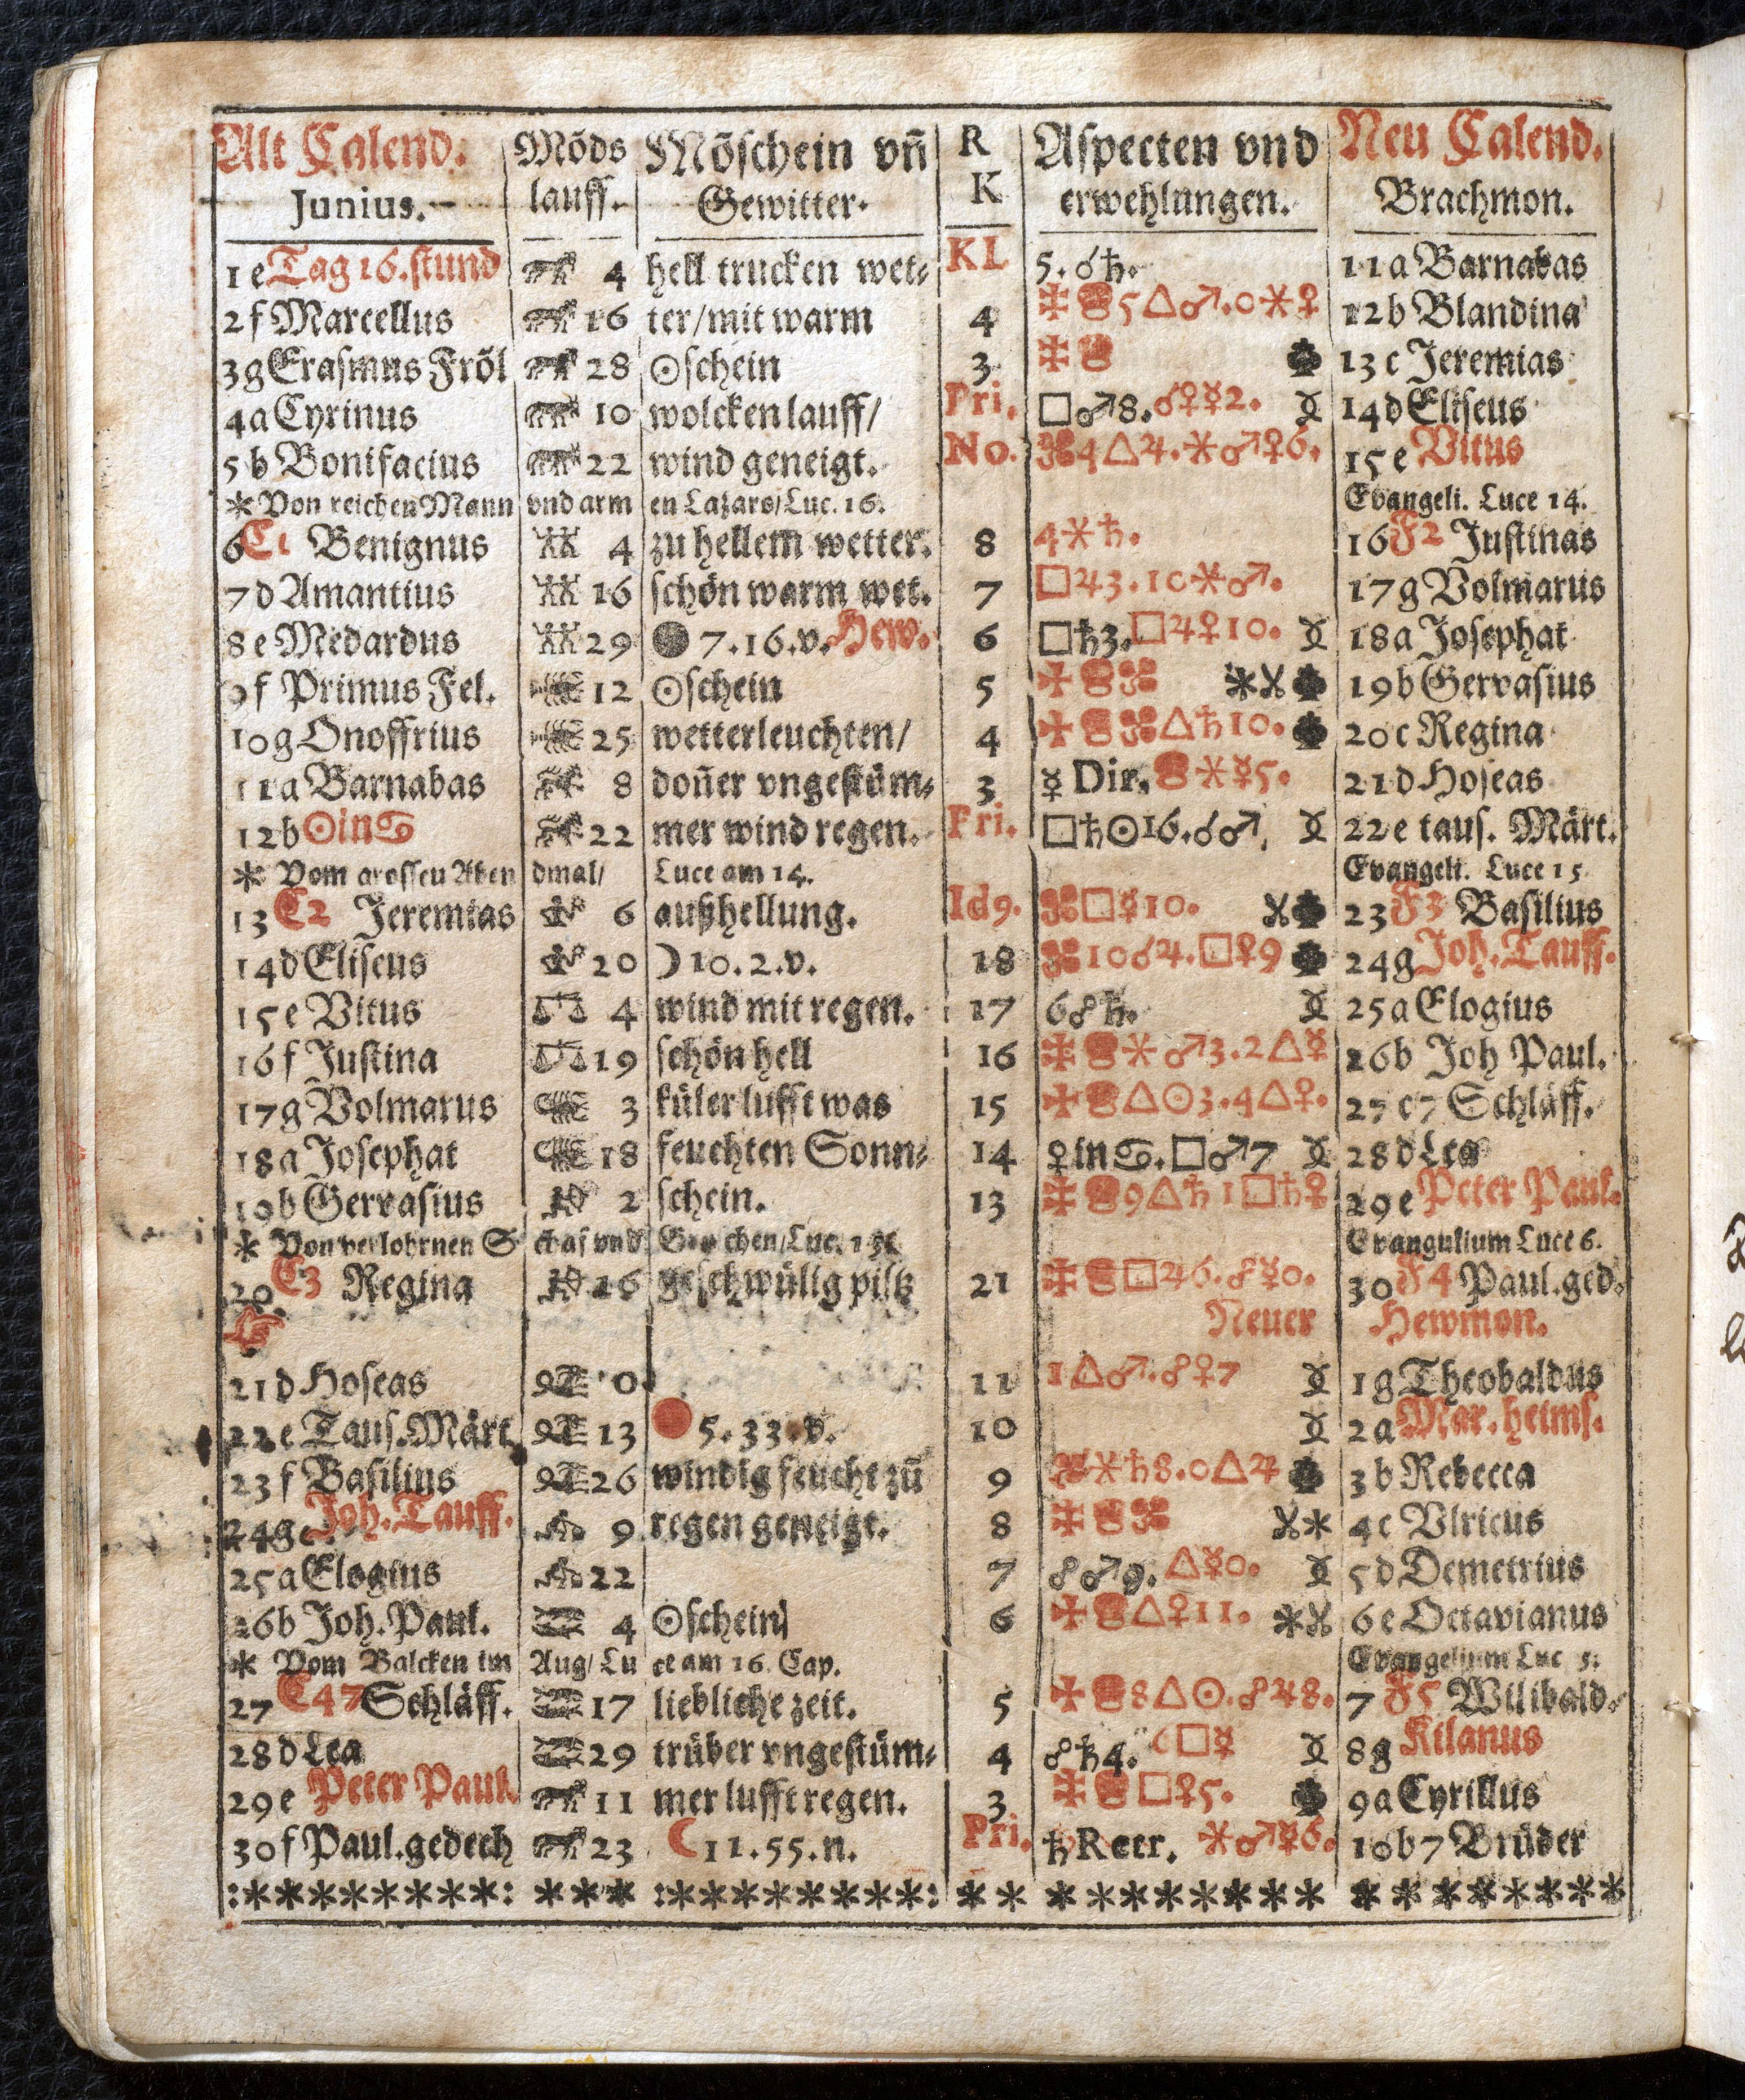 Alt Calend. Mõds Mõschein vñ R Aspecten vnd Neu Calend.
Junius. lauff. Gewitter. K erwehlungen. Brachmon.
1 e Tag 16. stund 4 hell trucken wet⸗ KL 5. ☌♄. 11 a Barnabas
2 f Marcellus 16 ter/mit warm 4 5△♂.0⚹♀ 12 b Blandina
3 g Erasmus Fröl 28 ☉schein 3 13 c Jeremias
4 a Cyrinus 10 wolcken lauff/ Pri. □♂8.☌♀☿2. 14 d Eliseus
5 b Bonifacius 22 wind geneigt. No. 4△♃.⚹♂♀6. 15 e Vitus
* Von reichen Mann vnd arm en Lazaro/Luc. 16. Evangeli. Luce 14.
6 C1 Benignus 4 zu hellem wetter. 8 4⚹♄. 16 F2 Justinas
7 d Amantius 16 schön warm wet. 7 □♃3.10⚹♂. 17 g Volmarus
8 e Medardus 29 7.16.v. Hew. 6 □♄3.□♃♀10. 18 a Josephat
9 f Primus Fel. 12 ☉schein 5 19 b Gervasius
10 g Onoffrius 25 wetterleuchten/ 4 △♄10. 20 c Regina
11 a Barnabas 8 doñer vngestüm⸗ 3 ☿ Dir. ⚹☿5. 21 d Hoseas
12 b ☉in♋ 22 mer wind regen. Pri. □♄☉16.☌♂, 22 e taus. Märt.
* Vom grossen Aben dmal/ Luce am 14. Evangeli. Luce 15
13 C2 Jeremias 6 außhellung. Id9. □☿10. 23 F3 Basilius
14 d Eliseus 20 ☽10.2.v. 18 10☌♃.□♀9 24 g Joh. Tauff.
15 e Vitus 4 wind mit regen. 17 6☍♄. 25 a Elogius
16 f Justina 19 schön hell 16 ⚹♂3.2△☿ 26 b Joh Paul.
17 g Volmarus 3 küler lufft was 15 △☉3.4△♀. 27 c 7 Schläff.
18 a Josephat 18 feuchten Sonn⸗ 14 ♀in♋.□♂7 28 d Lea
19 b Gervasius 2 schein. 13 9△♄1□♄♀ 29 e Peter Paul.
* Von verlohrnen S chaf vnd Evangulium Luce 6.
20 C3 Regina 16 geschwülig piltz 21 □♃6.☍☿0. 30 F4 Paul. ged.
Neuer Hewmon.
21 d Hoseas 0 11 1△♂.☍♀7 1 g Theobaldus
22 e Taus. Märt. 13 5.33.v. 10 2 a Mar. heims.
23 f Basilius 26 windig feucht zũ 9 ⚹♄8.0△♃ 3 b Rebecca
24 g Joh. Tauff. 9 regen geneigt. 8 4 c Vlricus
25 a Elogius 22 7 ☍♂9. △☿0. 5 d Demetrius
26 b Joh. Paul. 4 ☉schein 6 △♀11. 6 e Octavianus
* Vom Balcken im Aug/ Lu ce am 16 Cap. Evangelium Luc 5.
27 C4 7 Schläff. 17 liebliche zeit. 5 8△☉.☍♃8. 7 F5 Wilibald.
28 d Lea 29 trüber vngestüm⸗ 4 ☍♄4. 6□☿ 8 g Kilanus
29 e Peter Paul 11 mer lufft regen. 3 □♀5. 9 a Cyrillus
30 f Paul. gedech 23 ☾11.55.n. Pri. ♄Retr. ⚹♂☿6. 10 b 7 Brüder